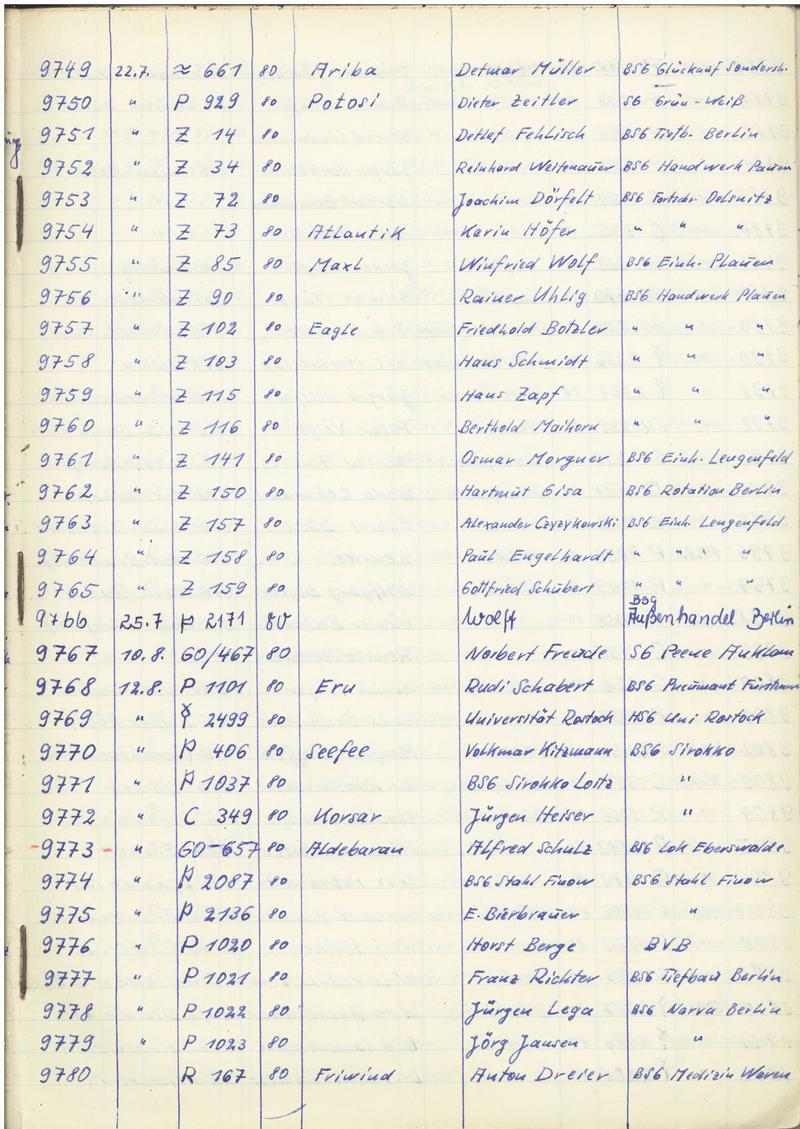 9749 22.7. ≈ 661 80 Ariba Detmar Müller BSG Glückauf Sondersh.
9750 " P 929 80 Potosi Dieter Zeitler SG Grün-Weiß
9751 " Z 14 80 Detlef Fehlisch BSG Tiefb. Berlin
9752 " Z 34 80 Reinhard Weitenauer BSG Handwerk Plauen
9753 " Z 72 80 Joachim Dörfelt BSG Fortschr. Oelsnitz
9754 " Z 73 80 Atlantik Karin Höfer " " "
9755 " Z 85 80 Maxl Winfried Wolf BSG Einh. Plauen
9756 " Z 90 80 Rainer Uhlig BSG Handwerk Plauen
9757 " Z 102 80 Eagle Friedhold Botzler " " "
9758 " Z 103 80 Hans Schmidt " " "
9759 " Z 115 80 Hans Zapf " " "
9760 " Z 116 80 Berthold Maihorn " " "
9761 " Z 141 80 Osmar Morgner BSG Einh. Lengenfeld
9762 " Z 150 80 Hartmut Gisa BSG Rotation Berlin
9763 " Z 157 80 Alexander Czyzykowski BSG Einh. Lengenfeld
9764 " Z 158 80 Paul Engelhardt " " "
9765 " Z 159 80 Gottfried Schubert " " "
9766 25.7 P 2171 80 Wolff BSG Außenhandel Berlin
9767 10.8. GO/467 80 Norbert Freude SG Peene Anklam
9768 12.8. P 1101 80 Eru Rudi Schabert BSG Pneumant Fürstenw
9769 " 2499 80 Universität Rostock HSG Uni Rostock
9770 " P 406 80 Seefee Volkmar Kitzmann BSG Sirokko
9771 " P 1037 80 BSG Sirokko Loitz "
9772 " C 349 80 Korsar Jürgen Heiser "
9773 " GO-657 80 Aldebaran Alfred Schulz BSG Lok Eberswalde
9774 " P 2087 80 BSG Stahl Finow BSG Stahl Finow
9775 " P 2136 80 E. Bierbrauer "
9776 " P 1020 80 Horst Berge BVB
9777 " P 1021 80 Franz Richter BSG Tiefbau Berlin
9778 " P 1022 80 Jürgen Lega BSG Narva Berlin
9779 " P 1023 80 Jörg Jansen "
9780 R 167 80 Friwind Anton Dreier BSG Medizin Waren